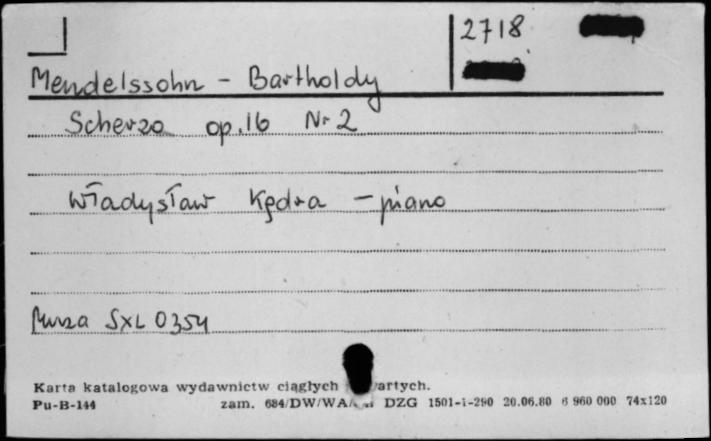 2718
Mendelssohn - Bartholdy
Scherzo op.16 Nr 2
Władysław Kędra - piano
Muza SXL 0354
Karta katalogowa wydawnictw ciągłych
Pu-B-144 zam. 684/DW/WA/ DZG 1501-1-290 20.06.80 6 960 000 74x120